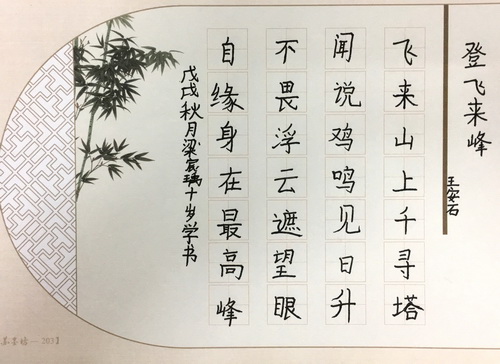 登飞来峰
王安石
飞来山上千寻塔
闻说鸡鸣见日升
不畏浮云遮望眼
自缘身在最高峰
戊戌秋月梁宸瑀十岁学书